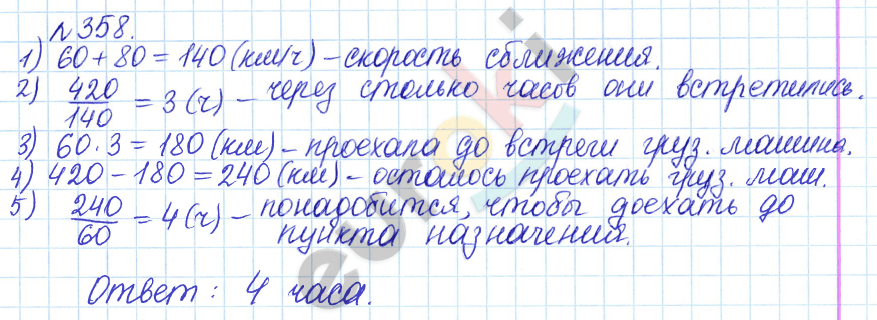 №358.
1) 60 + 80 = 140 (км/ч) – скорость сближения.
2) 420/140 = 3 (ч) – через столько часов они встретились.
3) 60 · 3 = 180 (км) – проехала до встречи груз. машина.
4) 420 – 180 = 240 (км) – осталось проехать груз. маш.
5) 240/60 = 4 (ч) – понадобится, чтобы доехать до
пункта назначения.
Ответ: 4 часа.
euroki